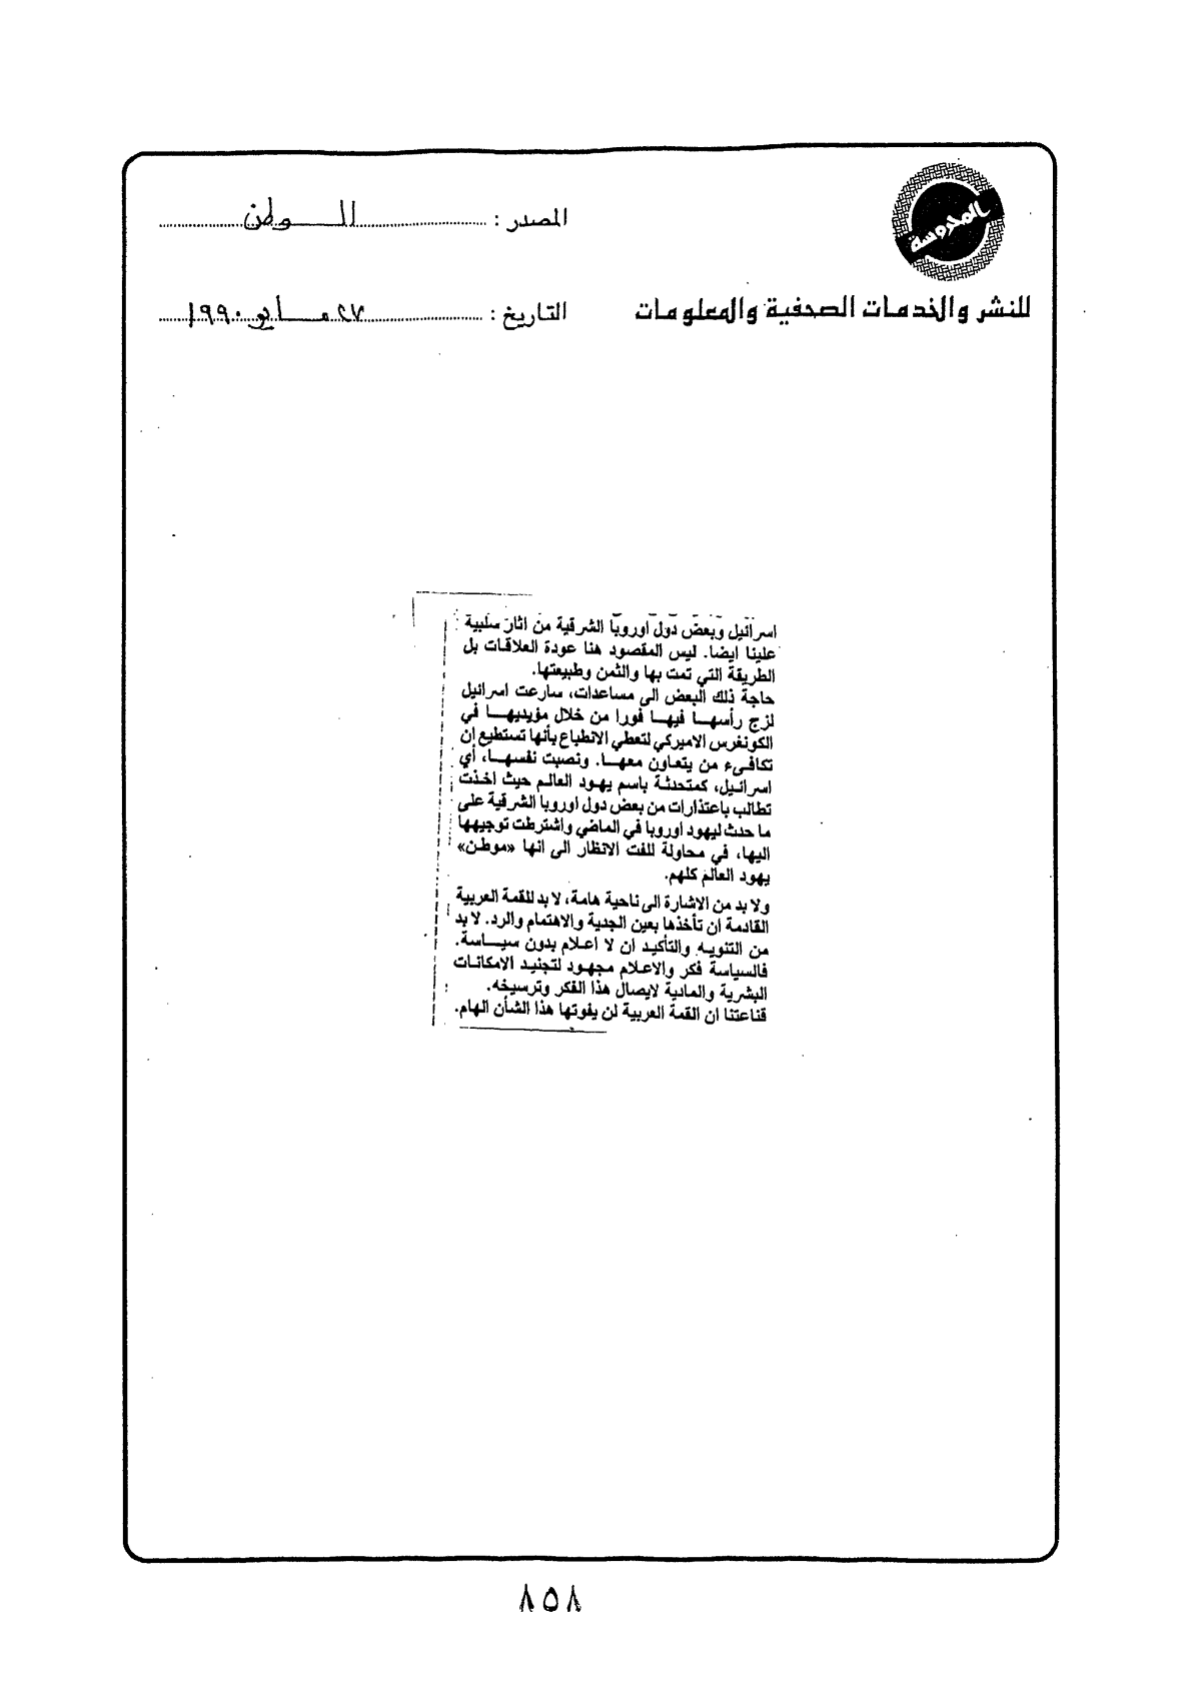 المحروسة
للنشر والخدمات الصحفية والمعلومات
المصدر : الوطن
التاريخ : ٢٧ مايو ١٩٩٠
اسرائيل وبعض دول اوروبا الشرقية من اثار سلبية
علينا ايضا. ليس المقصود هنا عودة العلاقات بل
الطريقة التي تمت بها والثمن وطبيعتها.
حاجة ذلك البعض الى مساعدات، سارعت اسرائيل
لزج رأسها فيها فورا من خلال مؤيديها في
الكونغرس الاميركي لتعطي الانطباع بأنها تستطيع ان
تكافىء من يتعاون معها. ونصبت نفسها، أي
اسرائيل، كمتحدثة باسم يهود العالم حيث اخذت
تطالب باعتذارات من بعض دول اوروبا الشرقية على
ما حدث ليهود اوروبا في الماضي واشترطت توجيهها
اليها، في محاولة للفت الانظار الى انها «موطن»
يهود العالم كلهم.
ولا بد من الاشارة الى ناحية هامة، لا بد للقمة العربية
القادمة ان تأخذها بعين الجدية والاهتمام والرد. لا بد
من التنويه والتأكيد ان لا اعلام بدون سياسة.
فالسياسة فكر والاعلام مجهود لتجنيد الامكانات
البشرية والمادية لايصال هذا الفكر وترسيخه.
قناعتنا ان القمة العربية لن يفوتها هذا الشأن الهام.
٨٥٨